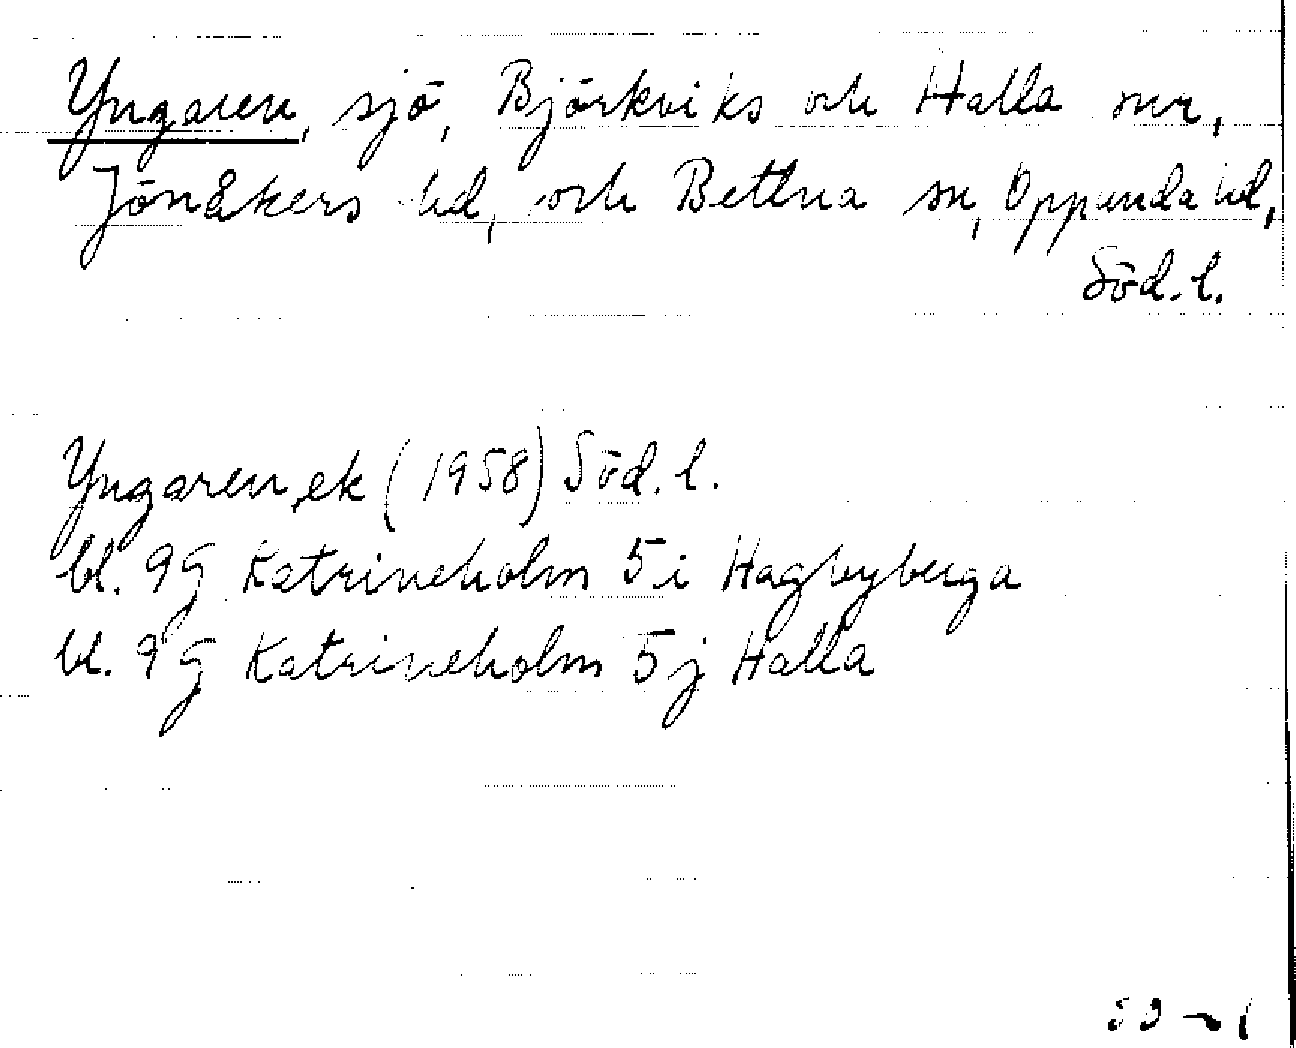 Yngaren, sjö, Björkviks och Halla snr,
Jönåkers hd, och Bettna sn, Oppunda hd,
Söd. l.
Yngaren, ek (1958) Söd. l.
bl. 9G Katrineholm 5i Hagbyberga
bl. 9G Katrineholm 5j Halla